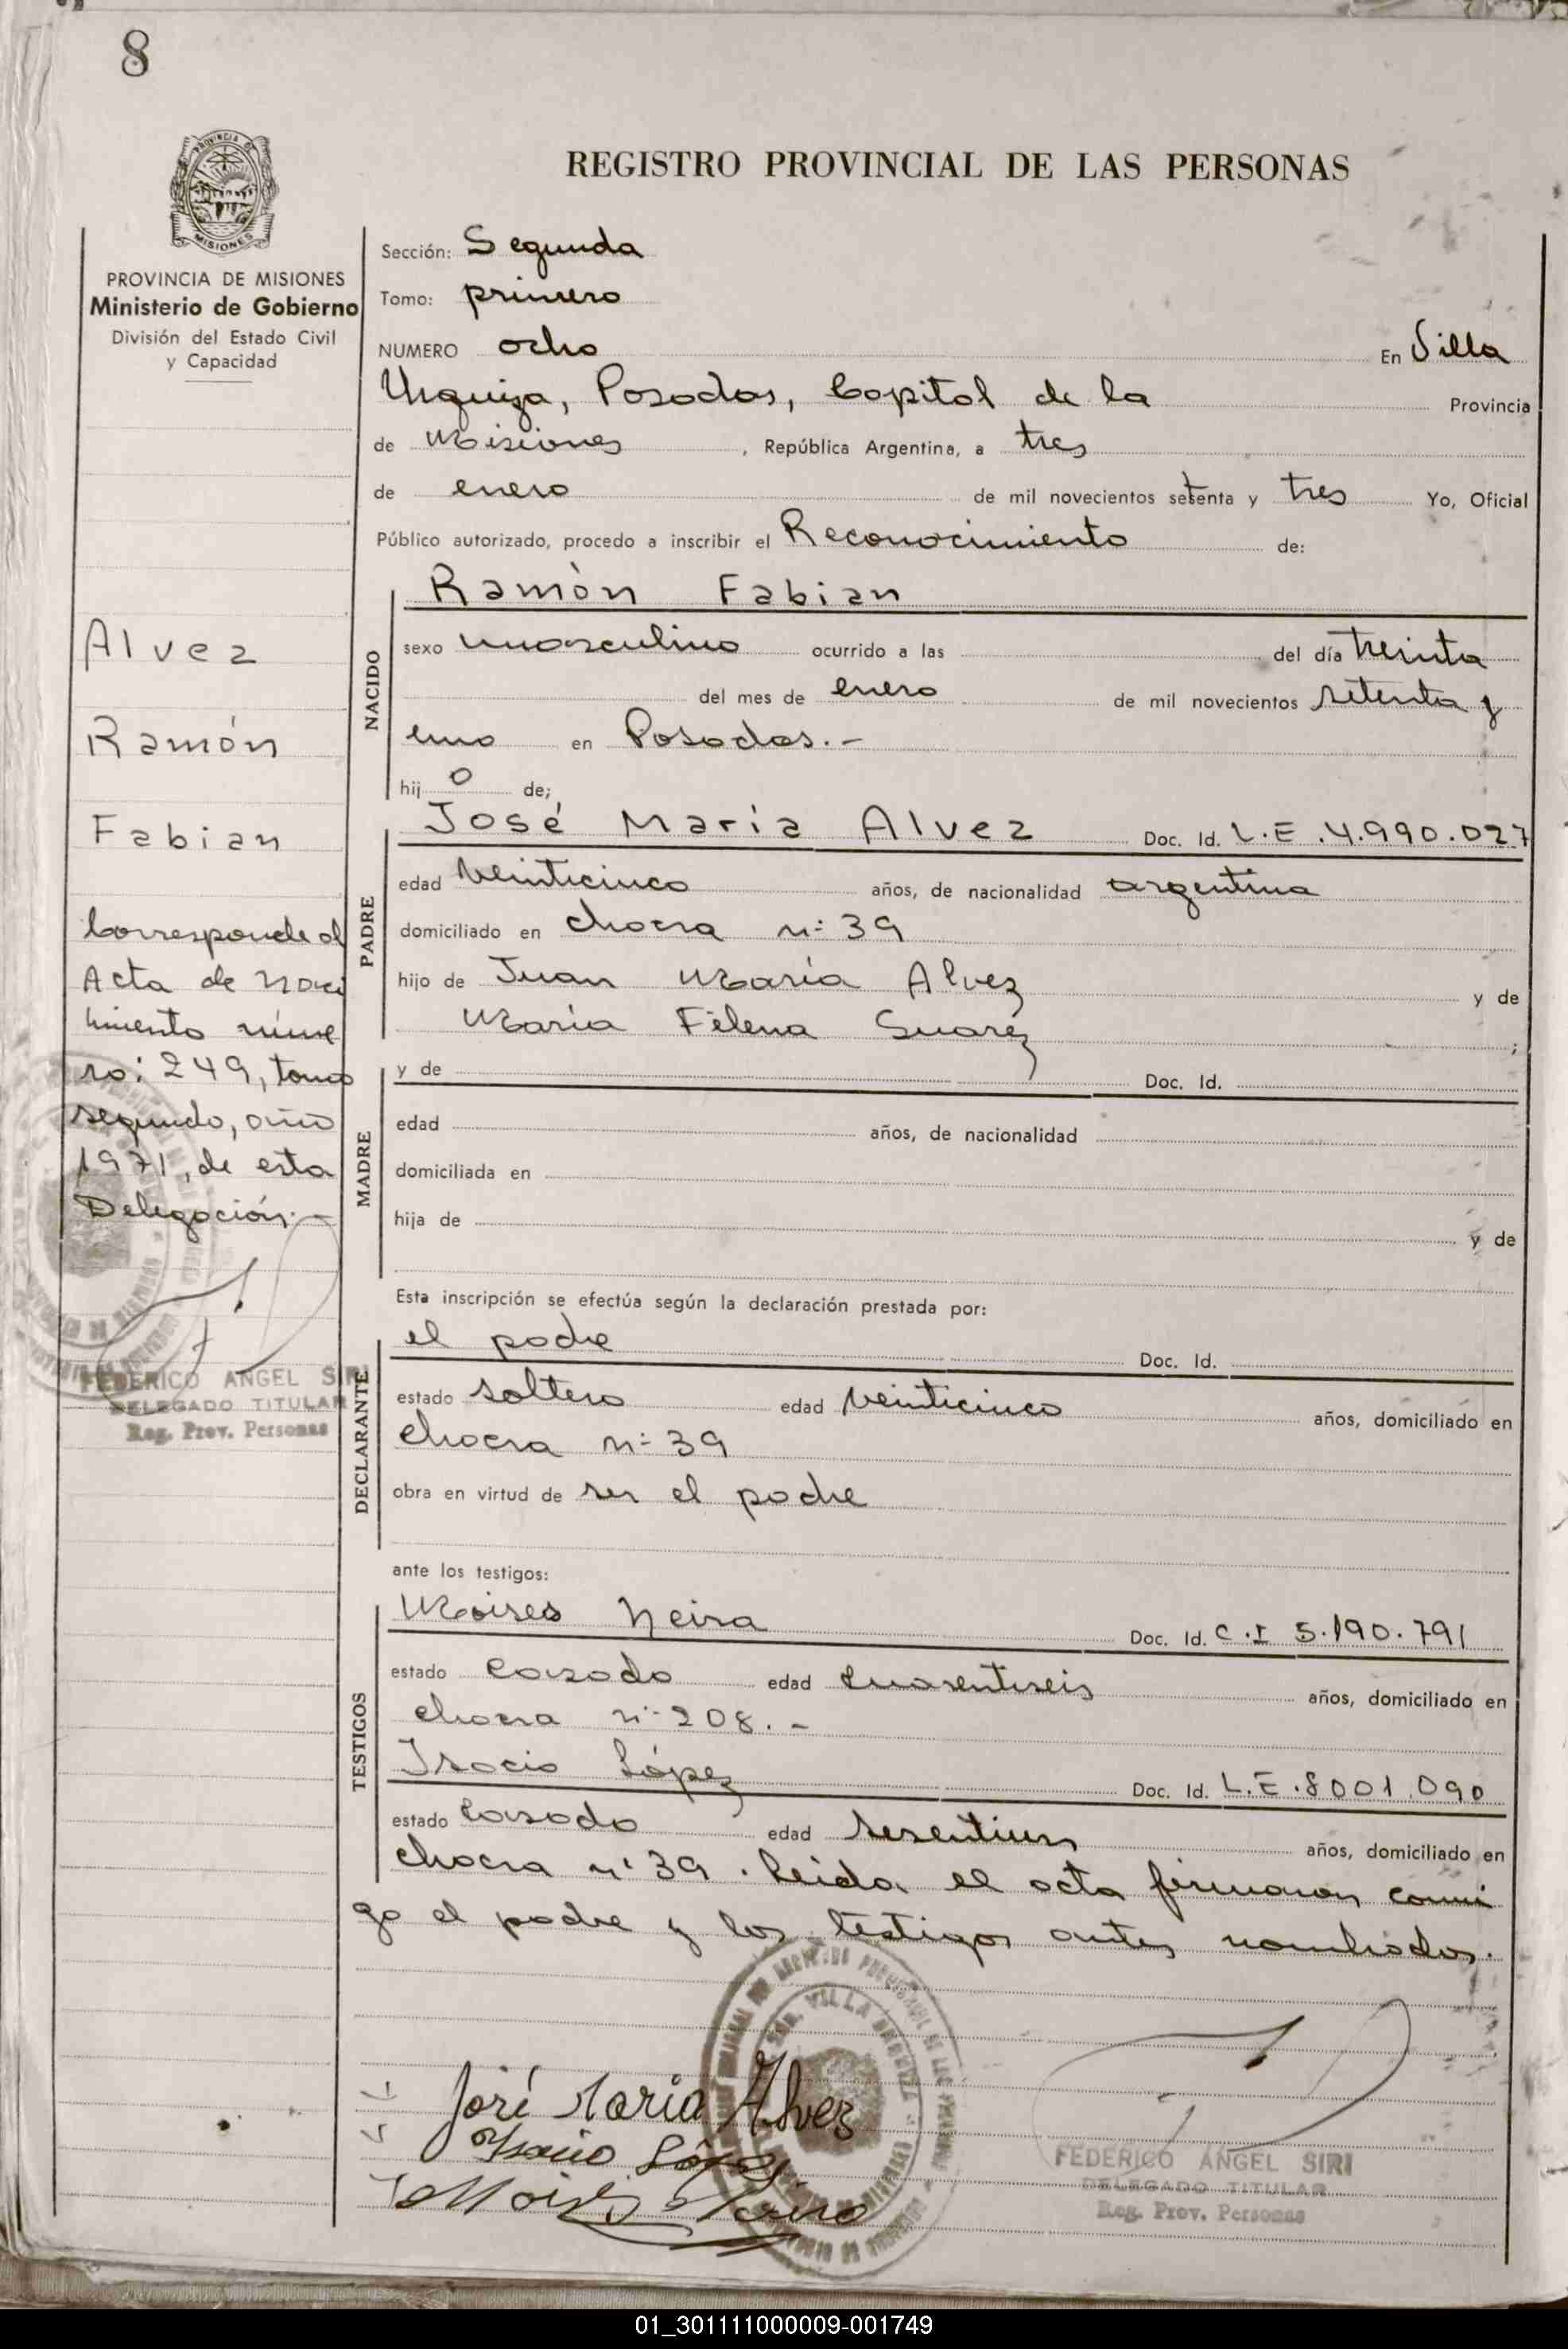 8
REGISTRO PROVINCIAL DE LAS PERSONAS
PROVINCIA DE MISIONES
Ministerio de Gobierno
División del Estado Civil
y Capacidad
Sección: Segunda
Tomo: primero
NUMERO ocho En Villa
Urquiza, Posadas, Capital de la Provincia
de Misiones, República Argentina, a tres
de enero de mil novecientos setenta y tres Yo, Oficial
Público autorizado, procedo a inscribir el Reconocimiento de:
Alvez
Ramón
Fabian
Corresponde al
Acta de Naci
miento núme
ro: 249, tomo
segundo, año
1971, de esta
Delegación.-
FEDERICO ANGEL SIRI
DELEGADO TITULAR
Reg. Prov. Personas
NACIDO
Ramòn Fabian
sexo masculino ocurrido a las del día treinta
del mes de enero de mil novecientos setenta y
uno en Posadas.-
hijo de;
PADRE
José María Alvez Doc. Id. L.E.4.990.027
edad veinticinco años, de nacionalidad argentina
domiciliado en chacra n: 39
hijo de Juan María Alvez y de
María Filena Suarez ;
MADRE
y de Doc. Id.
edad años, de nacionalidad
domiciliada en
hija de y de
Esta inscripción se efectúa según la declaración prestada por:
DECLARANTE
el padre Doc. Id.
estado soltero edad veinticinco años, domiciliado en
chacra n: 39
obra en virtud de ser el padre
ante los testigos:
TESTIGOS
Moises Neira Doc. Id. C.I 5.190.791
estado Casado edad cuarentiseis años, domiciliado en
chacra n: 208.-
Isacio López Doc. Id. L.E.8001.090
estado Casado edad sesentiun años, domiciliado en
chacra n: 39. Leida el acta firmaron conmi
go el padre y los testigos antes nombrados.
José Maria Alvez
Isacio López
Moises Neira
VILLA URQUIZA
FEDERICO ANGEL SIRI
DELEGADO TITULAR
Reg. Prov. Personas
01_301111000009-001749